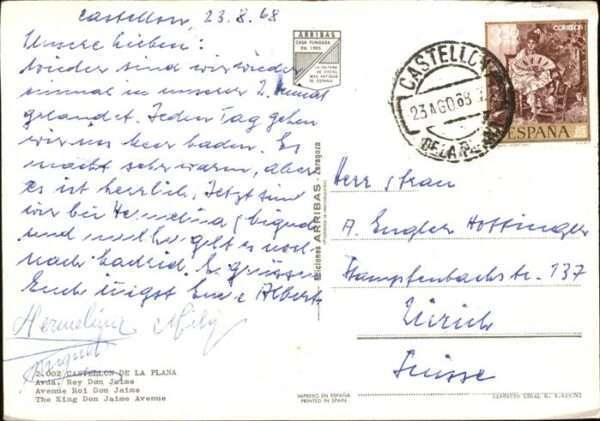 Castellon, 23.8.68
Unsere Lieben:
Wieder sind wir wieder
einmal in unserer 2. Heimat
gelandet. Jeden Tag gehen
wir ins Meer baden. Es
macht sehr warm, aber
es ist herrlich. Jetzt sind
wir bei Hermelina,
und geht es noch
nach Madrid. Es grüssen
Euch innigst Eure Alberts
Hermelina
ARRIBAS
CASA FUNDADA
EN 1905
LA EDITORA
DE POSTAL
MAS ANTIGUA
DE ESPAÑA
Ediciones ARRIBAS - Zaragoza
CASTELLON
23 AGO 68
DE LA PLANA
CORREOS
ESPAÑA
Herr & Frau
A. Engler Hottinger
Stampfenbachstr. 137
Zürich
Suisse
2.002 CASTELLON DE LA PLANA
Avda. Rey Don Jaime
Avenue Roi Don Jaime
The King Don Jaime Avenue
IMPRESO EN ESPAÑA
PRINTED IN SPAIN